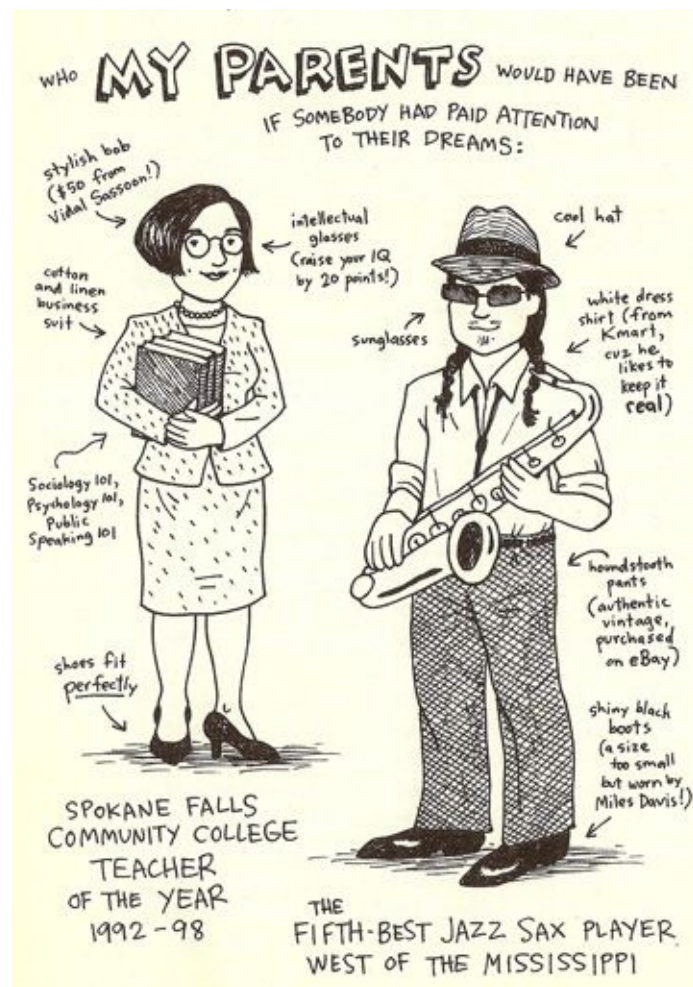 WHO MY PARENTS WOULD HAVE BEEN
IF SOMEBODY HAD PAID ATTENTION
TO THEIR DREAMS:
stylish bob
($50 from
Vidal Sassoon!)
intellectual
glasses
(raise your IQ
by 20 points!)
cotton
and linen
business
suit
Sociology 101,
Psychology 101,
Public
Speaking 101
shoes fit
perfectly
SPOKANE FALLS
COMMUNITY COLLEGE
TEACHER
OF THE YEAR
1992-98
cool hat
sunglasses
white dress
shirt (from
Kmart,
cuz he
likes to
keep it
real)
houndstooth
pants
(authentic
vintage,
purchased
on eBay)
shiny black
boots
(a size
too small
but worn by
Miles Davis!)
THE
FIFTH-BEST JAZZ SAX PLAYER
WEST OF THE MISSISSIPPI